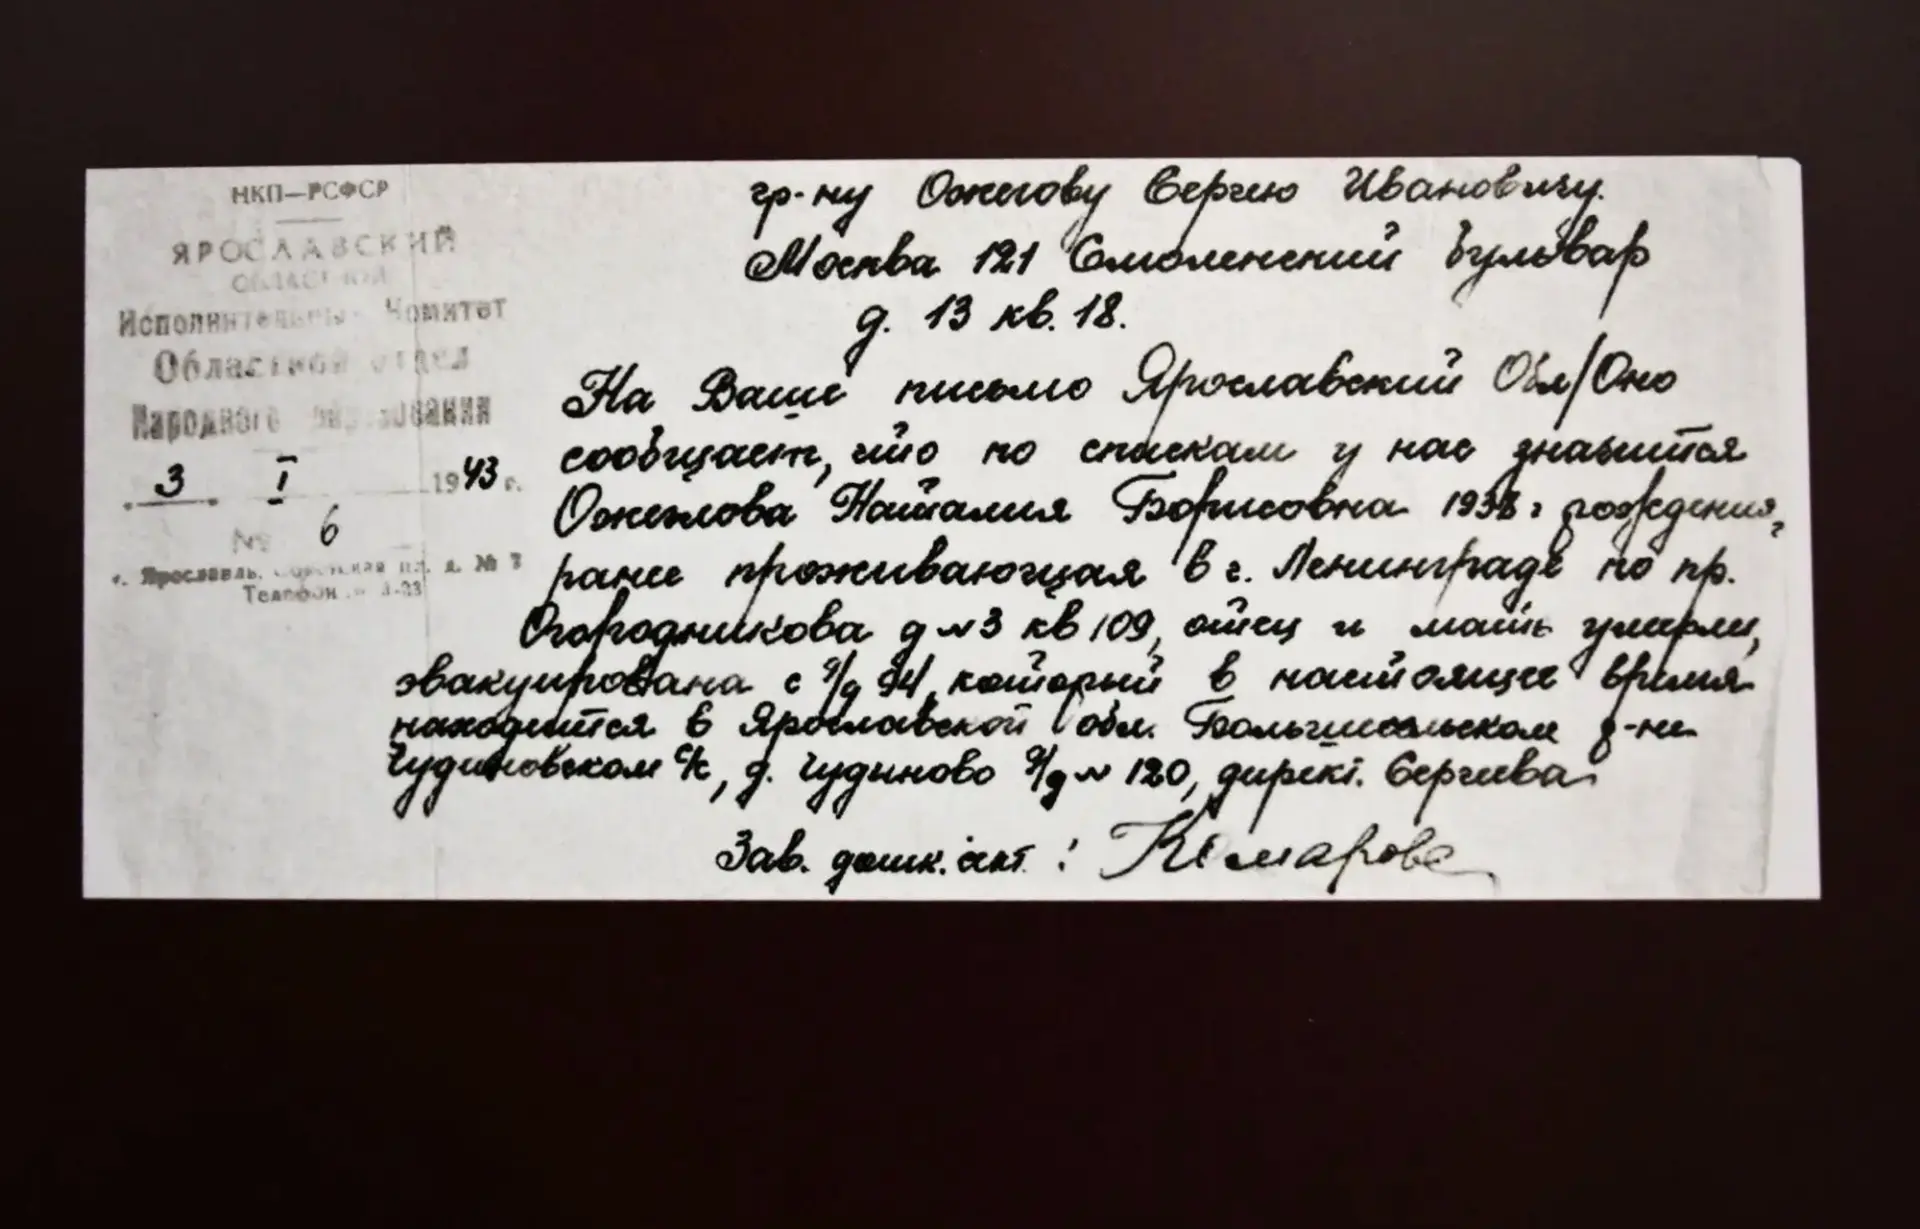 НКП—РСФСР
ЯРОСЛАВСКИЙ
ОБЛАСТНОЙ
Исполнительный Комитет
Областной отдел
Народного образования
3 I 1943 г.
№ 6
г. Ярославль, Советская пл. д. №
Телефон №
гр-ну Ожегову Сергею Ивановичу.
Москва 121 Смоленский бульвар
д. 13 кв. 18.
На Ваше письмо Ярославский Обл/Оно
сообщает, что по спискам у нас значится
Наталия Борисовна 1938 г рождения,
ранее проживающая в г. Ленинграде по пр.
Огородникова д N 3 кв 109, отец и мать умерли,
эвакуирована с я/д 94, который в настоящее время
находится в Ярославской обл. Большесельском р-не
Чудиновском с/с, д. Чудиново я/д N 120, директ. Сергеева
Зав. дошк. сект: Комарова